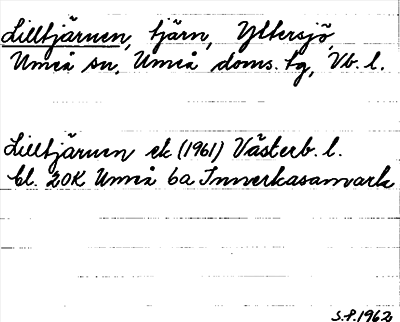 Lilltjärnen, tjärn, Yttersjö,
Umeå sn, Umeå doms. tg, Vb. l.
Lilltjärnen ek (1961) Västerb. l.
bl. 20K Umeå 6a Innerkasamark
S.P. 1962